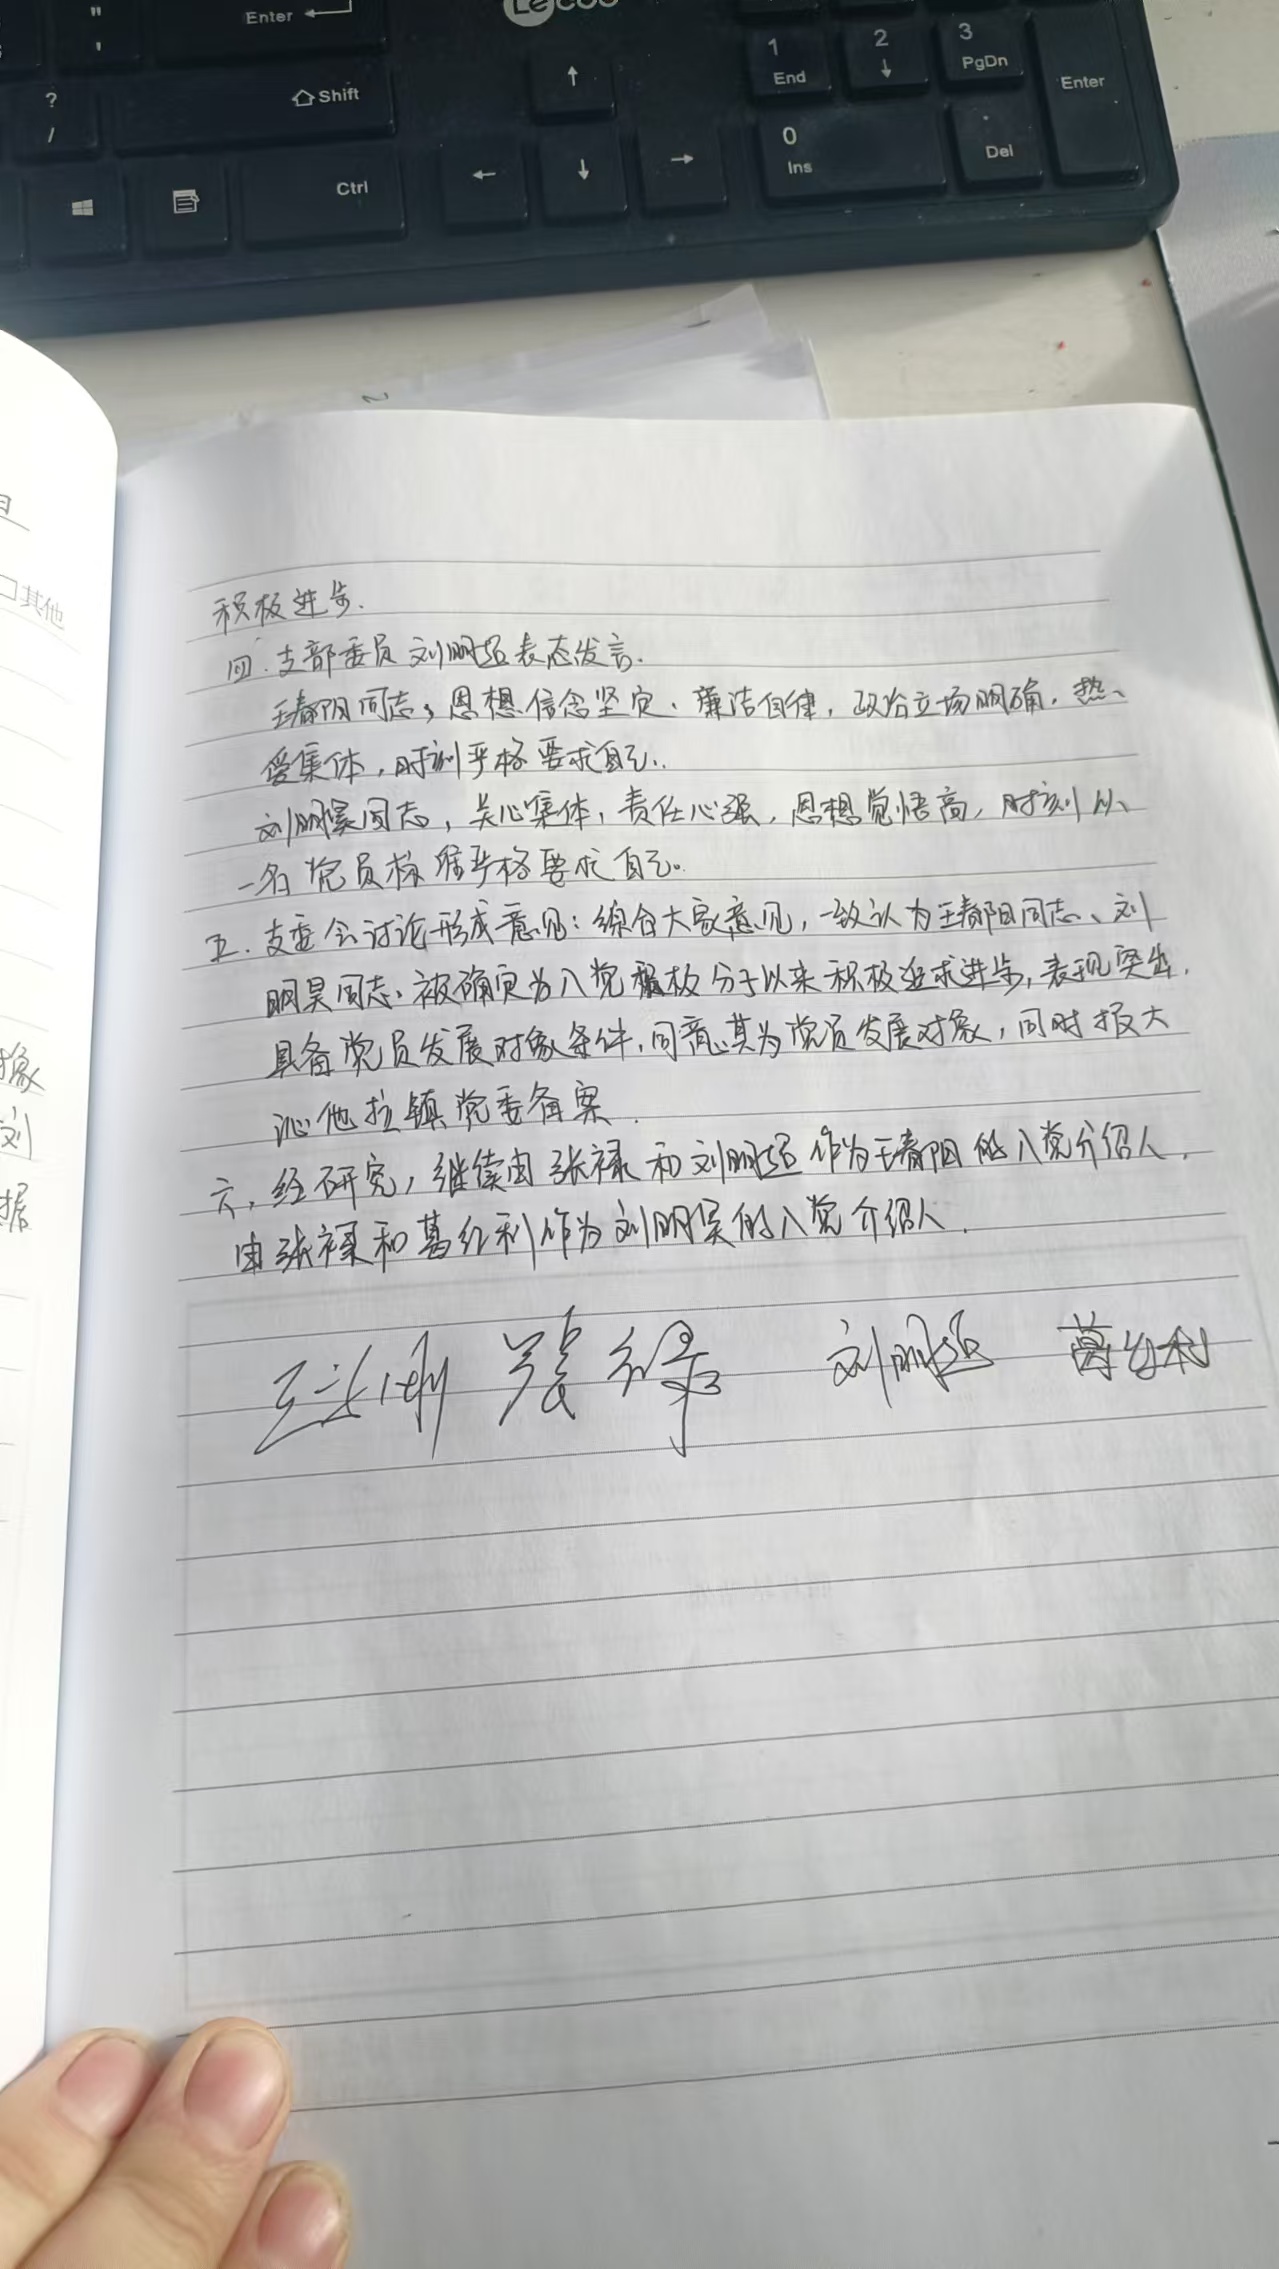 "
'
Enter
Lecoo
1
End
2
3
PgDn
Enter
?
/
Shift
0
Ins
.
Del
Ctrl
日
□其他
象
刘
据
积极进步.
四.支部委员刘明超表态发言.
王春阳同志,思想信念坚定、廉洁自律,政治立场明确,热、
爱集体,时刻严格要求自己.
刘明昊同志,关心集体,责任心强,思想觉悟高,时刻以、
一名党员标准严格要求自己。
五.支委会讨论形成意见:综合大家意见,一致认为王春阳同志、刘
明昊同志、被确定为入党积极分子以来积极追求进步,表现突出,
具备党员发展对象条件,同意其为党员发展对象,同时报大
沁他拉镇党委备案.
六,经研究,继续由张禄和刘明超作为王春阳的入党介绍人,
由张禄和葛红利作为刘明昊的入党介绍人.
刘明超 葛红利